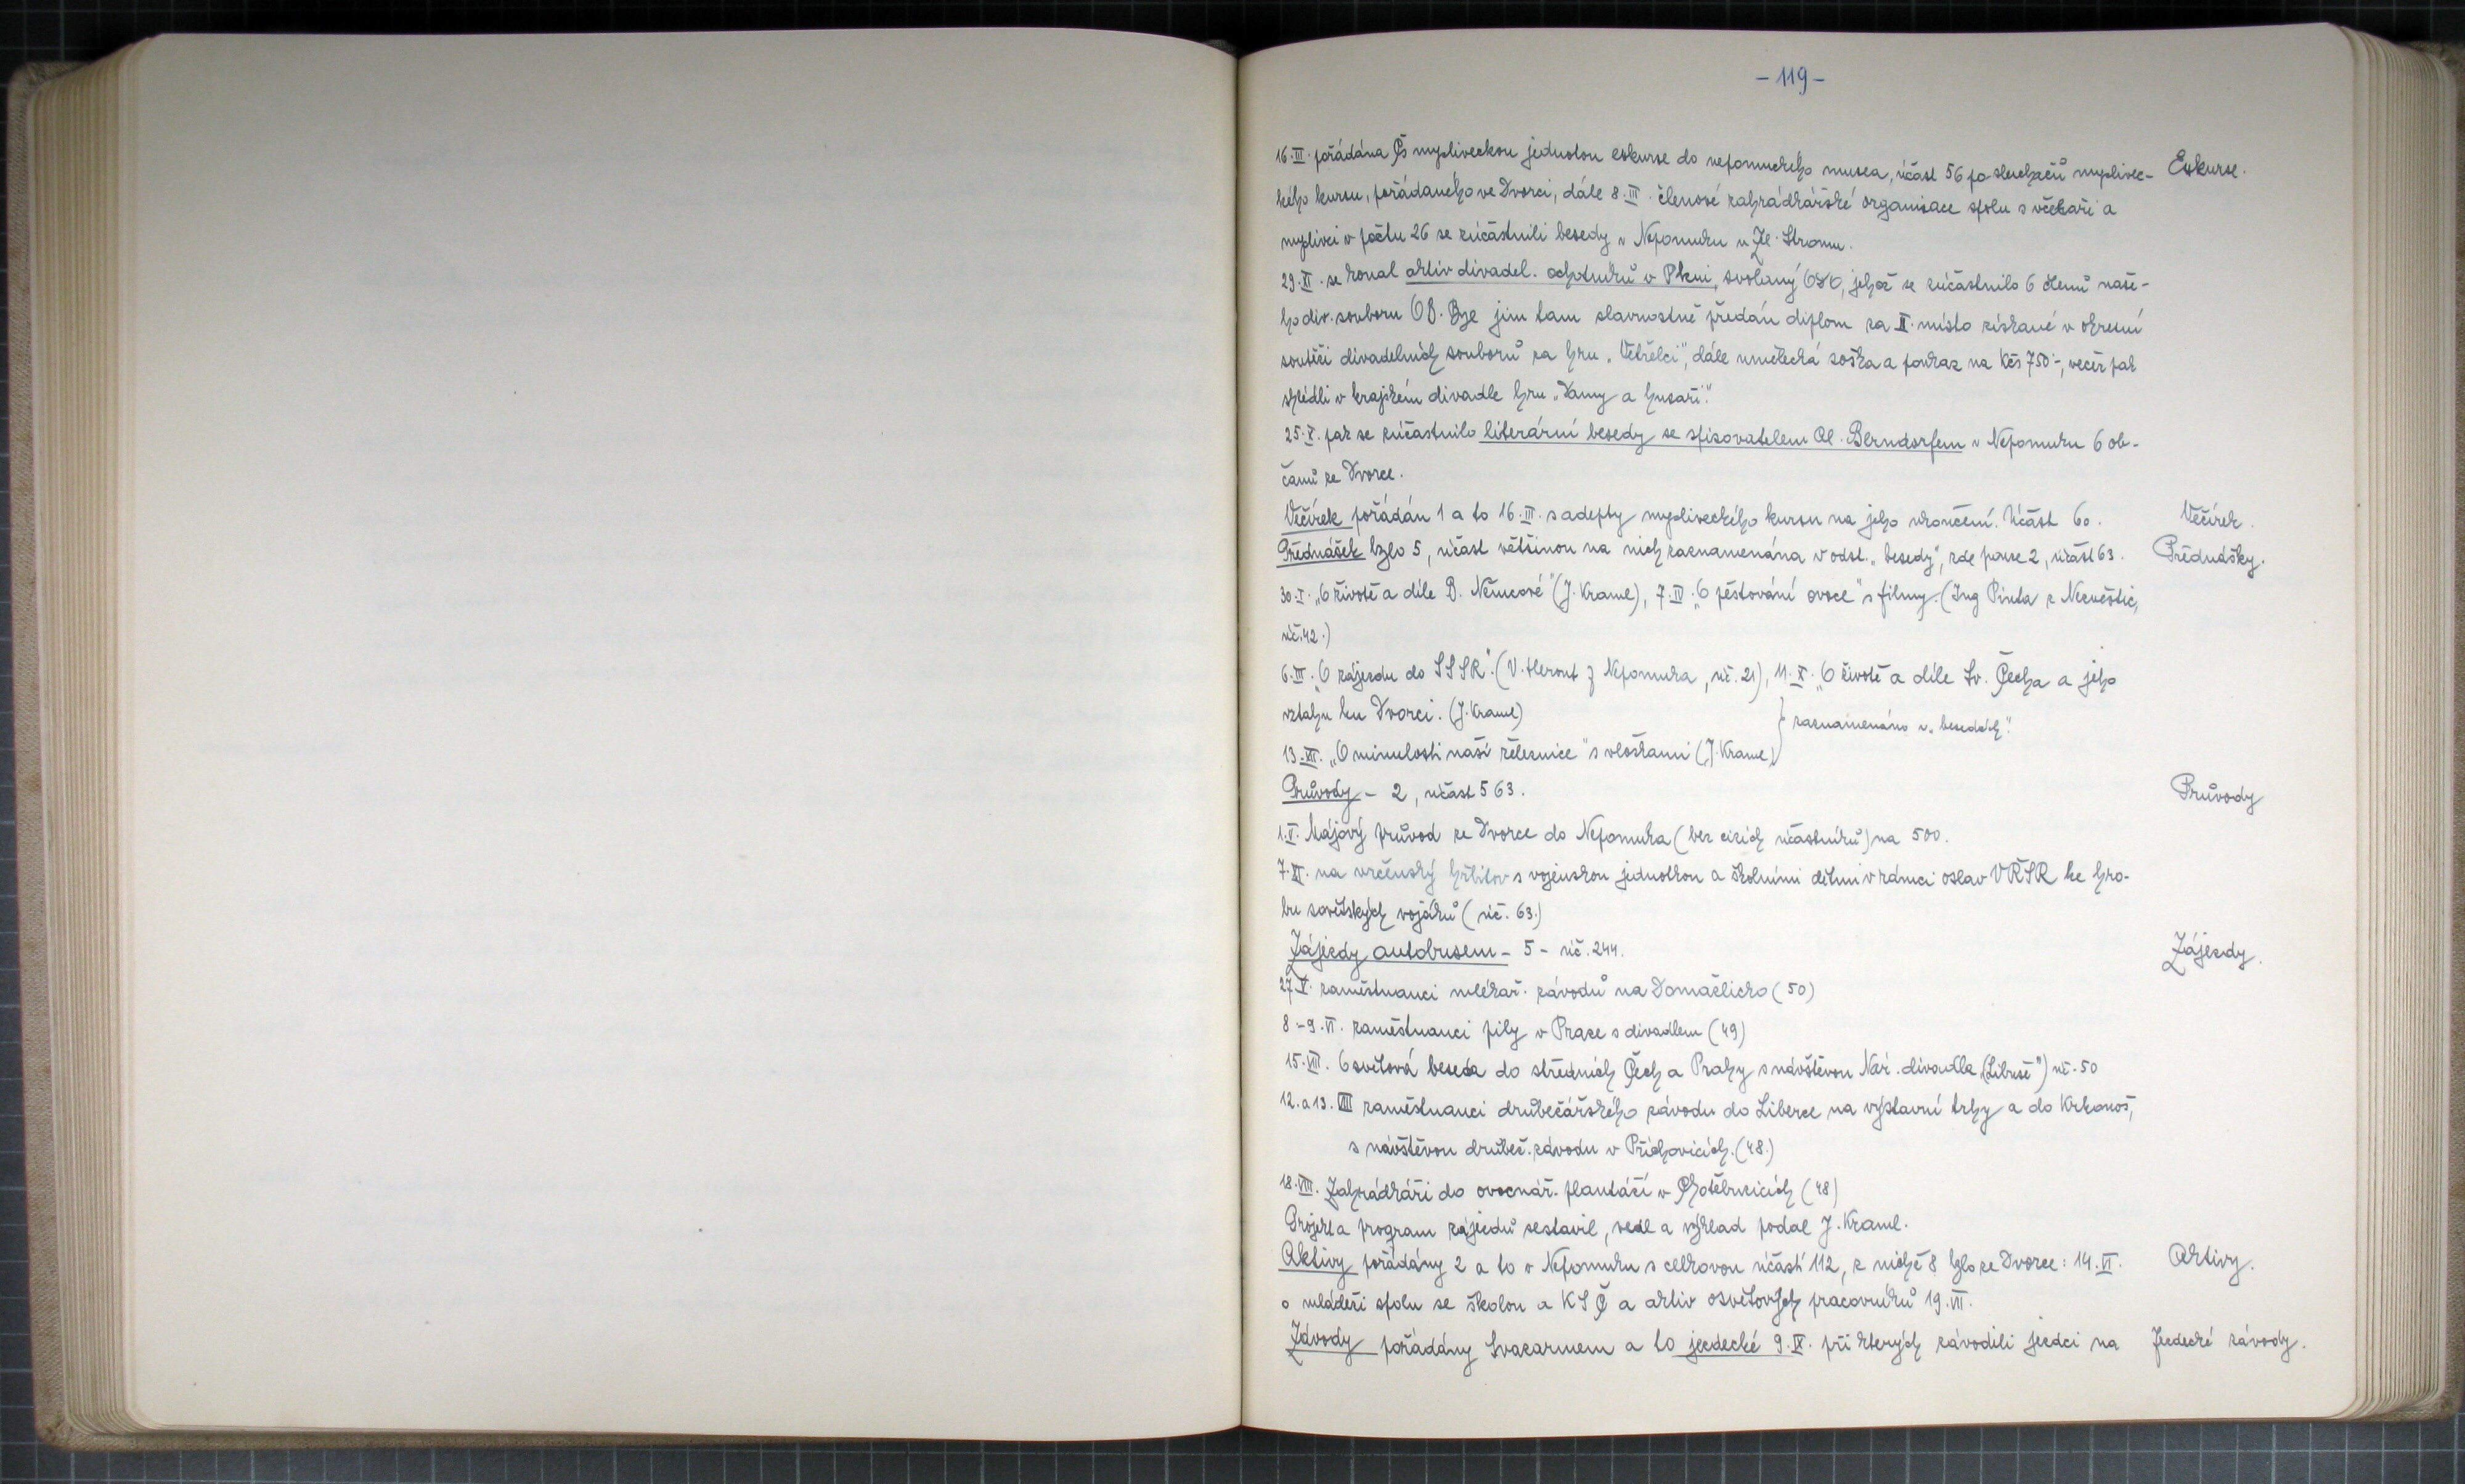 - 119 -
16.III. pořádána Čs mysliveckou jednotou exkurse do nepomuckého musea, účast 56 posluchačů myslivec-
Exkurse.
kého kursu, pořádaného ve Dvorci, dále 8.III. členové zahrádkářské organisace spolu s včelaři a
myslivci v počtu 26 se zúčastnili besedy v Nepomuku u Zel. Stromu.
29.XI. se konal aktiv divadel. ochotníků v Plzni, svolaný, jehož se zúčastnilo 6 členů naše-
ho div. souboru OB. Byl jim tam slavnostně předán diplom za II. místo získané v okresní
soutěži divadelních souborů za hru „Větřelci", dále umělecká soška a poukaz na Kčs 750-, večer pak
shlédli v krajském divadle hru „Damy a husaři".
25.X. pak se zúčastnilo literární besedy se spisovatelem Al. Berndorfem v Nepomuku 6 ob-
čanů ze Dvorce.
Večírek pořádán 1 a to 16.III. s adepty mysliveckého kursu na jeho ukončení. Účast 60.
Večírek.
Přednášek bylo 5, účast většinou na nich zaznamenána v odst. „besedy", zde pouze 2, účast 63.
Přednášky.
30.I. „O životě a díle B. Němcové" (J. Kraml), 7.IV. „O pěstování ovoce" s filmy. (Ing Pinta z Nezvěstic,
úč. 42.)
6.III. „O zájezdu do SSSR". (V. Heront z Nepomuka, úč. 21), 11.X. „O životě a díle Sv. Čecha a jeho
vztahu ku Dvorci. (J. Kraml) } zaznamenáno v „besedách".
13.XII. „O minulosti naší železnice" s vložkami (J. Kraml)
Průvody - 2, účast 563.
Průvody
1.V. Májový průvod ze Dvorce do Nepomuka (bez cizích účastníků) na 500.
7.XI. na vrčenský hřbitov s vojenskou jednotkou a školními dětmi v rámci oslav VŘSR ke hro-
bu sovětských vojáků (úč. 63.)
Zájezdy autobusem - 5 - úč. 244.
Zájezdy.
27.V. zaměstnanci mlékař. závodů na Domažlicko (50)
8-9.VI. zaměstnanci pily v Praze s divadlem (49)
15.VII. Osvětová beseda do středních Čech a Prahy s návštěvou Nár. divadla („Libuše") úč. 50
12. a 13. VIII zaměstnanci drůbežářského závodu do Liberce na výstavní trhy a do Krkonoš,
s návštěvou drůbež. závodu v Příchovicích. (48.)
18.VIII. Zahrádkáři do ovocnář. plantáží v Chotěbuzicích (48)
Projekt a program zájezdů sestavil, vedl a výklad podal J. Kraml.
Aktivy pořádány 2 a to v Nepomuku s celkovou účastí 112, z nichž 8 bylo ze Dvorce: 14.VI.
Aktivy.
o mládeži spolu se školou a KSČ a aktiv osvětových pracovníků 19.VII.
Závody pořádány Svazarmem a to jezdecké 9.IX. při kterých závodili jezdci na
Jezdecké závody.